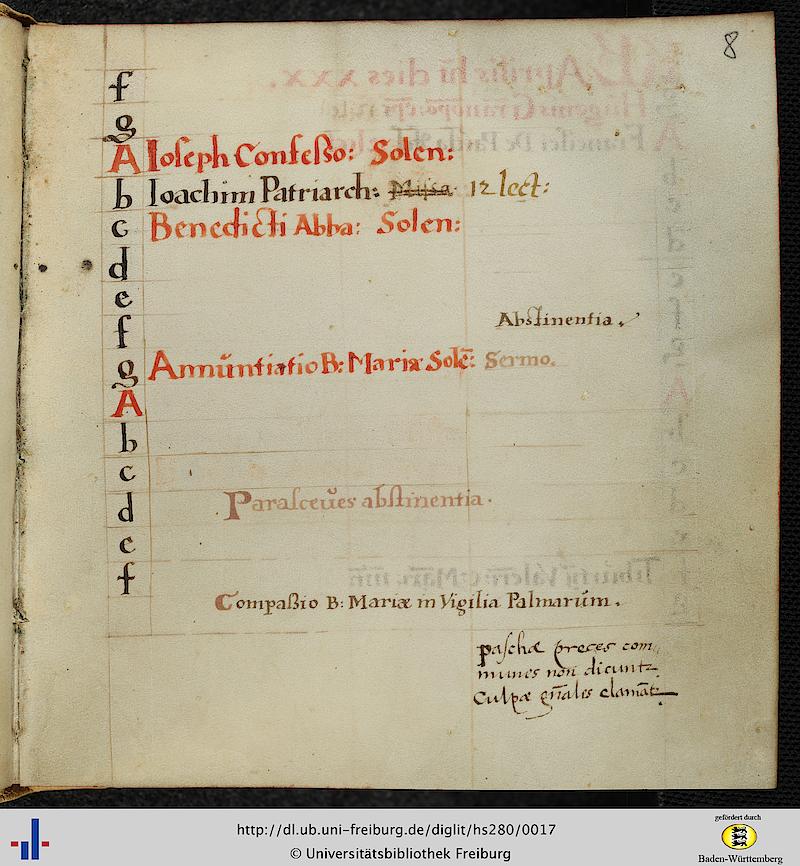 8
f
g
A Ioseph Confeßo: Solen:
b Ioachim Patriarch: Missa 12 lect:
c Benedicti Abba: Solen:
d
e
f Abstinentia.
g Annūntiatio B: Mariæ Solē: Sermo.
A
b
c
d Parasceües abstinentia.
e
f
Compaßio B: Mariæ in Vigilia Palmarūm.
paschæ preces com
munes non dicunt
Culpæ gn̄ales clamāt
http://dl.ub.uni-freiburg.de/diglit/hs280/0017
© Universitätsbibliothek Freiburg
gefördert durch
Baden-Württemberg